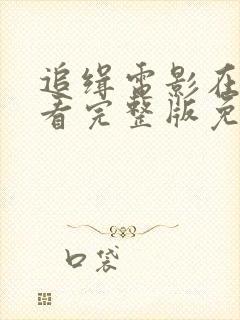 追缉电影在
看完整版免
口袋